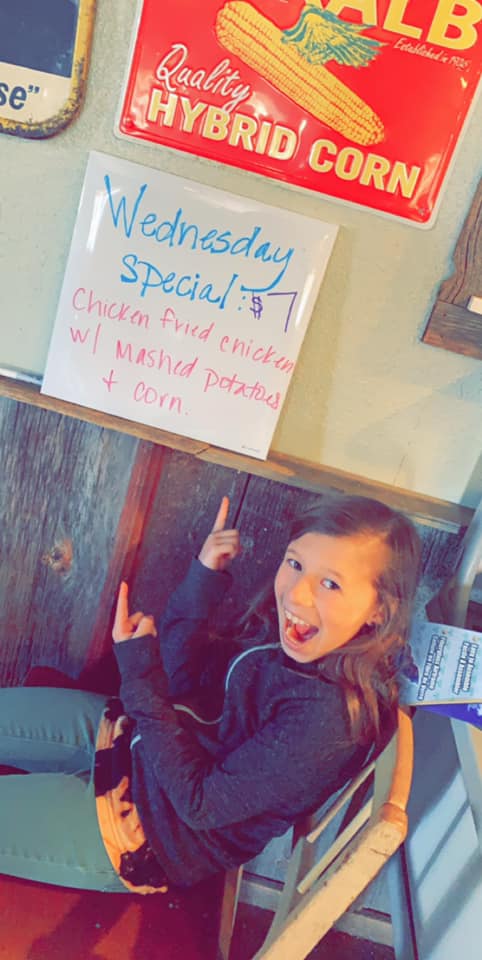 ALB
Established in 1925
Quality
HYBRID CORN
se"
Wednesday
Special: $7
Chicken fried chicken
w/ Mashed potatoes
+ corn.